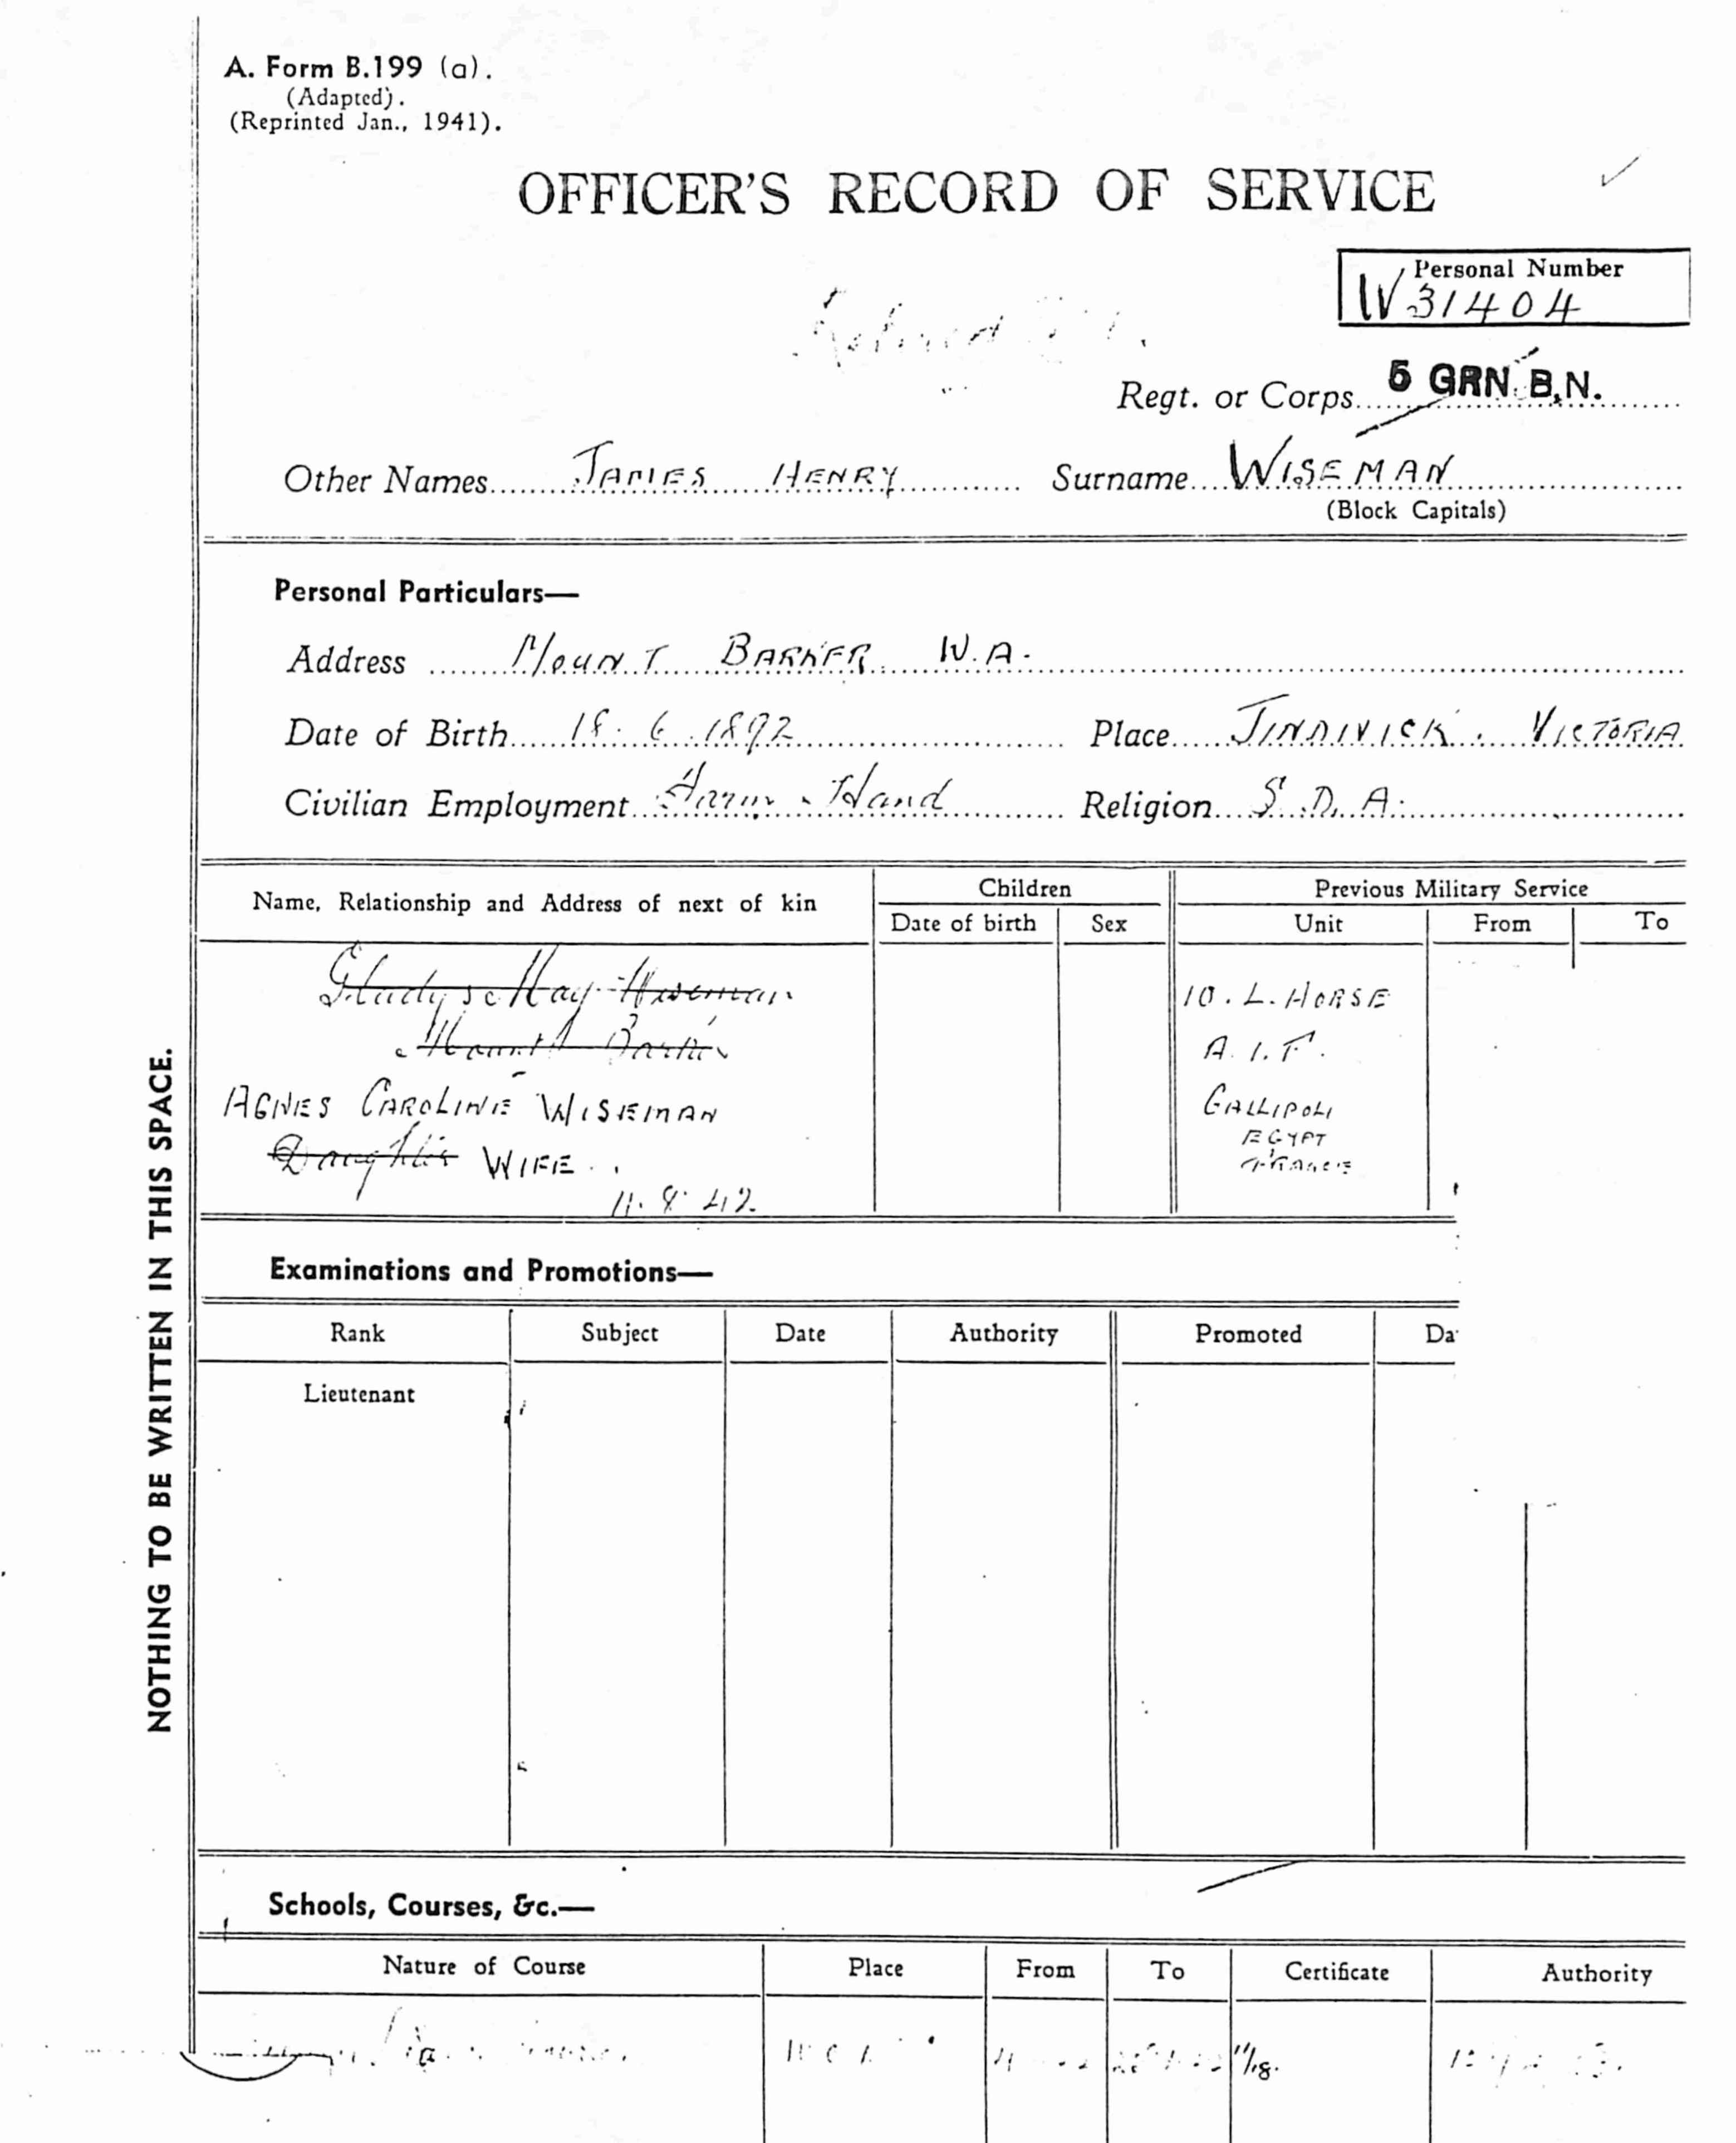 A. Form B.199 (a).
(Adapted).
(Reprinted Jan., 1941).
OFFICER'S RECORD OF SERVICE
Personal Number
W31404
Regt. or Corps 5 GRN. B.N.
Other Names JAMES HENRY Surname WISEMAN
(Block Capitals)
Personal Particulars—
Address MOUNT BARKER. W.A.
Date of Birth 18.6.1892 Place JINDIVICK. VICTORIA
Civilian Employment Farm Hand Religion S.D.A.
Name, Relationship and Address of next of kin Children Previous Military Service
Date of birth Sex Unit From To
Gladys May Wiseman 10. L. HORSE
Mount Barker A.I.F.
AGNES CAROLINE WISEMAN GALLIPOLI
Daughter WIFE. EGYPT
FRANCE
11.8.42
Examinations and Promotions—
Rank Subject Date Authority Promoted Da
Lieutenant
Schools, Courses, &c.—
Nature of Course Place From To Certificate Authority
NOTHING TO BE WRITTEN IN THIS SPACE.